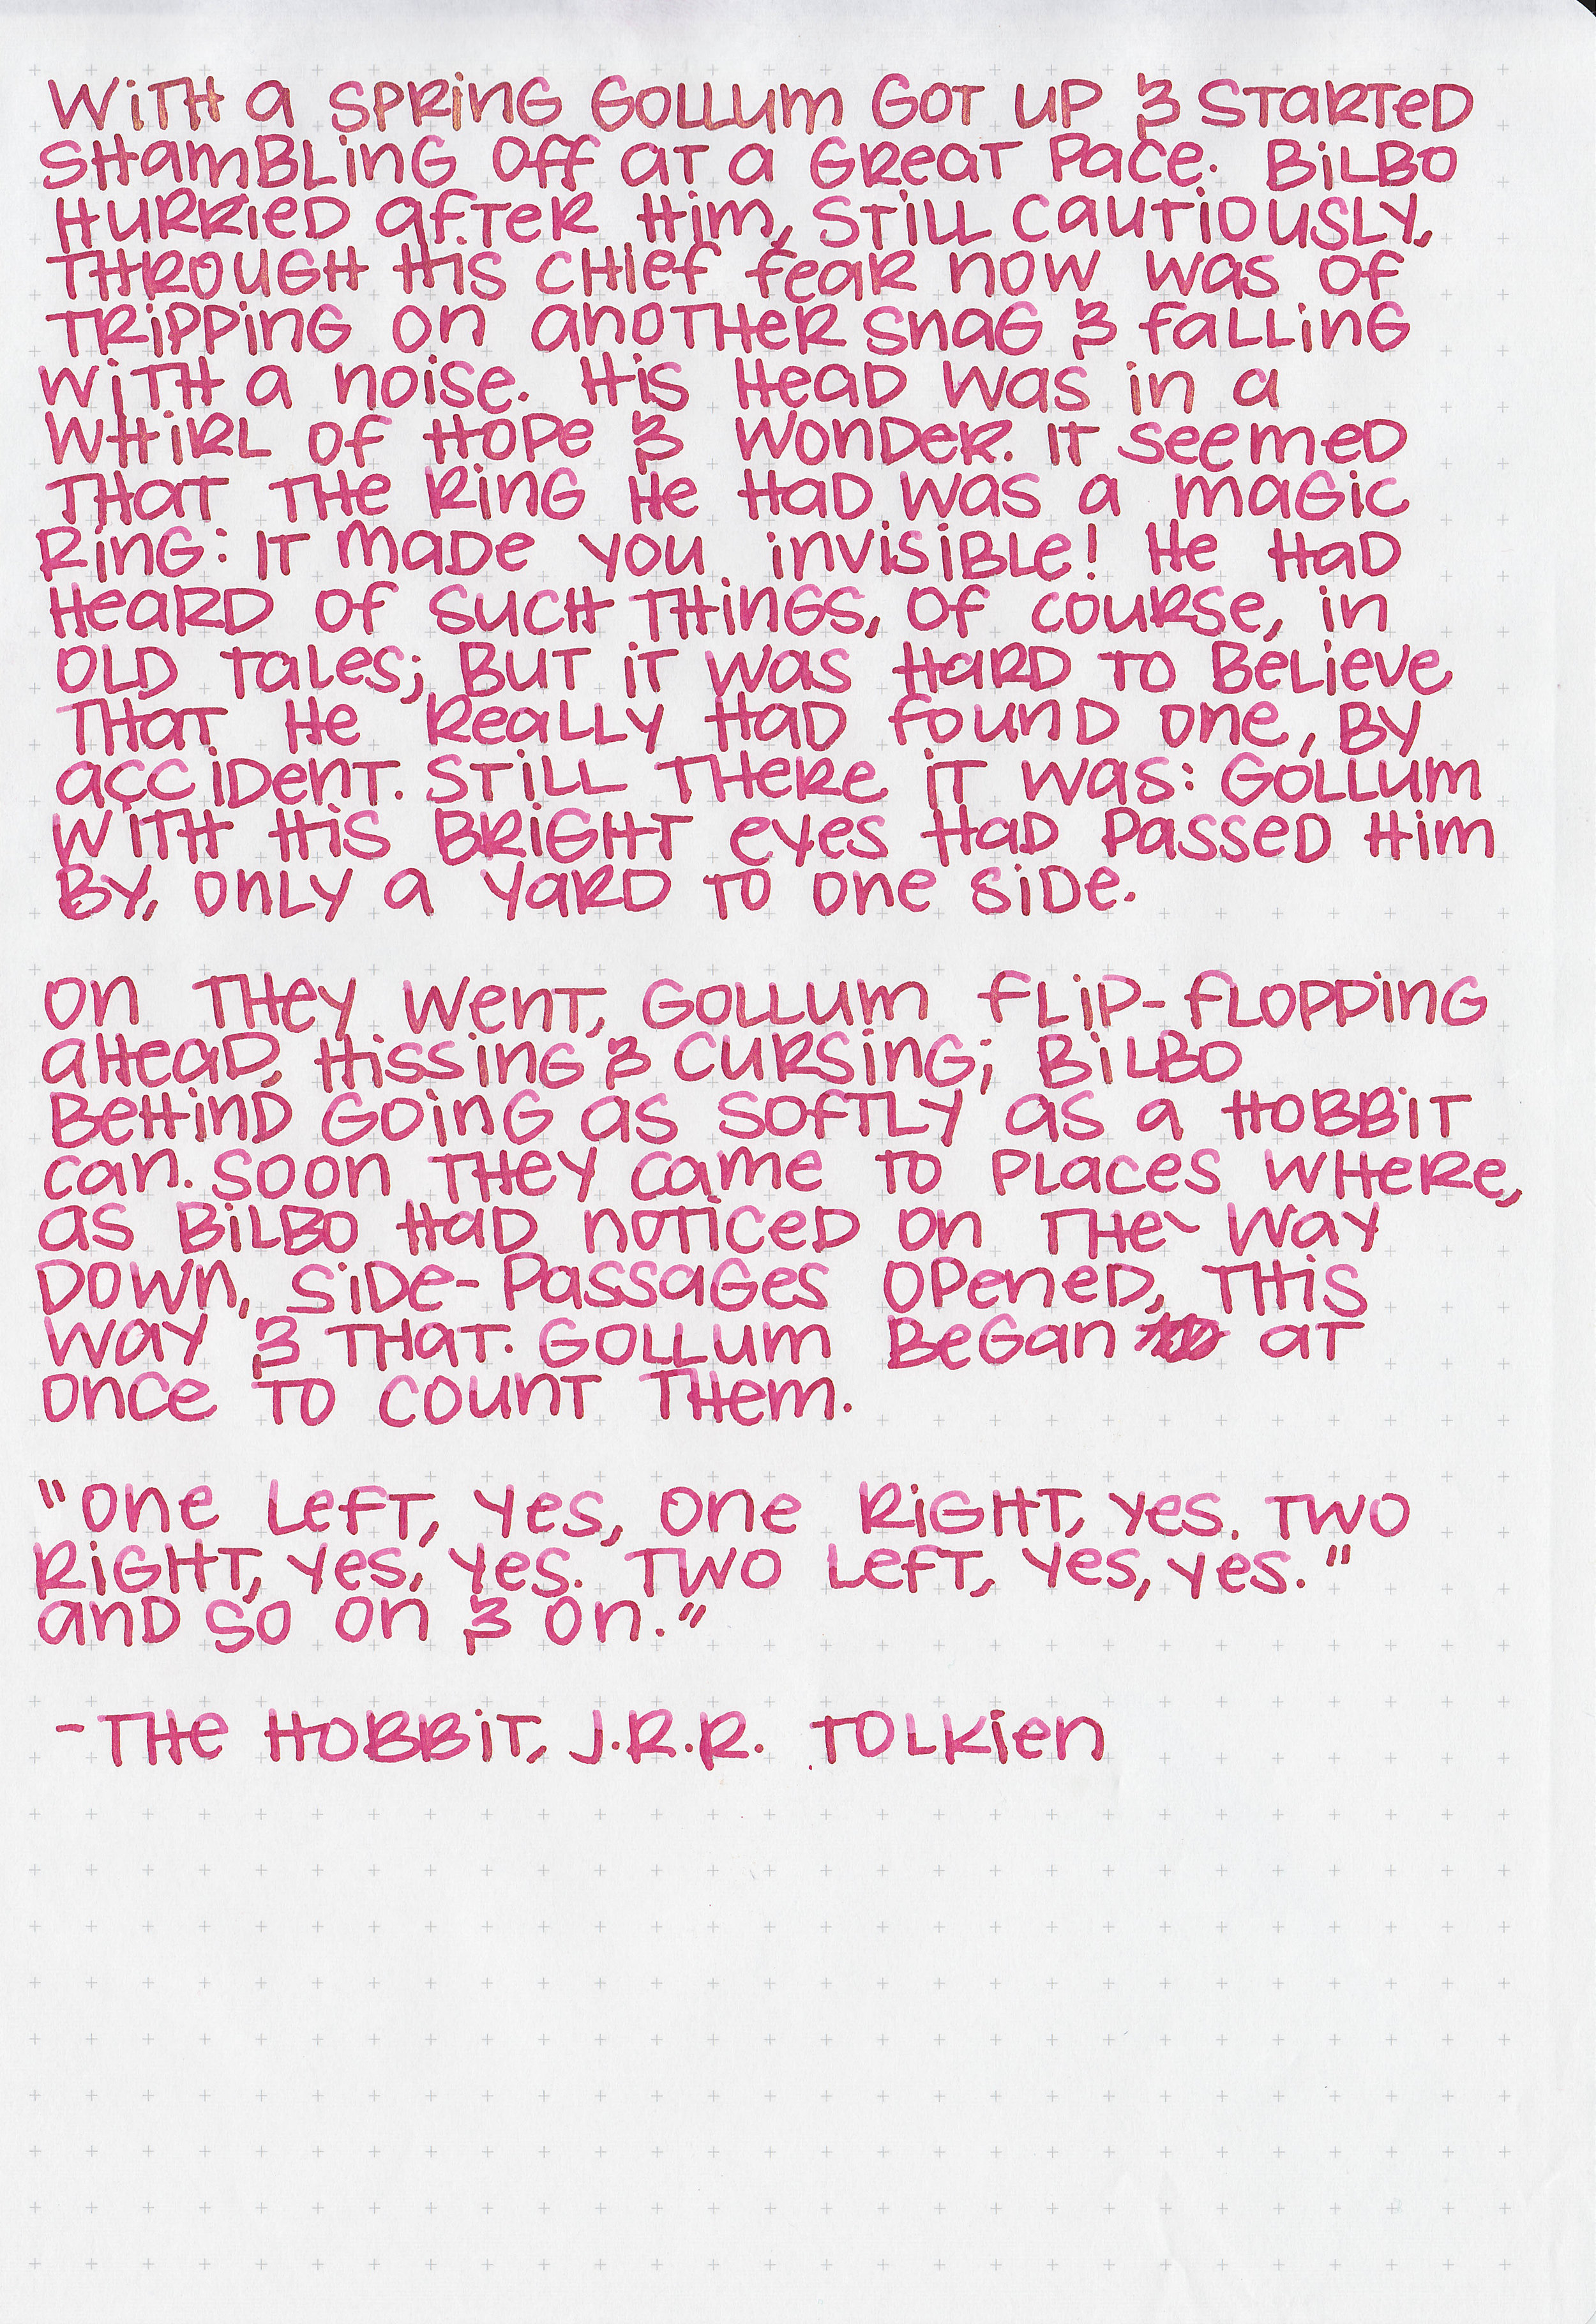 With a spring Gollum got up & started
shambling off at a great pace. Bilbo
hurried after him, still cautiously,
through his chief fear now was of
tripping on another snag & falling
with a noise. His head was in a
whirl of hope & wonder. It seemed
that the ring he had was a magic
ring: it made you invisible! He had
heard of such things, of course, in
old tales; but it was hard to believe
that he really had found one, by
accident. Still there it was: Gollum
with his bright eyes had passed him
by, only a yard to one side.

On they went, Gollum flip-flopping
ahead, hissing & cursing; Bilbo
behind going as softly as a hobbit
can. Soon they came to places where,
as Bilbo had noticed on the way
down, side-passages opened, this
way & that. Gollum began at
once to count them.

"One left, yes, one right, yes. Two
right, yes, yes. Two left, yes, yes."
and so on & on."

- The Hobbit, J.R.R. Tolkien